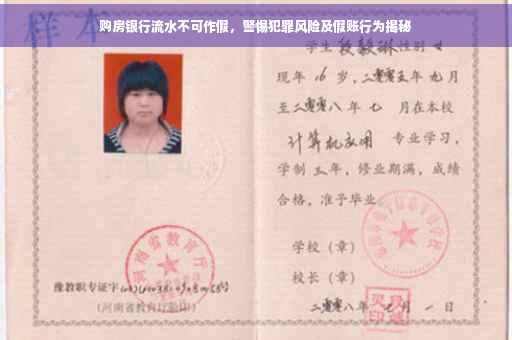 购房银行流水不可作假，警惕犯罪风险及假账行为揭秘
样本
学生段毅琳性别女
现年16岁，二零零五年九月
至二零零八年七月在本校
计算机应用专业学习，
学制三年，修业期满，成绩
合格，准予毕业。
学校（章）
校长（章）
河南省教育厅
豫教职专证字
（河南省教育厅验印）
二零零八年 月一日